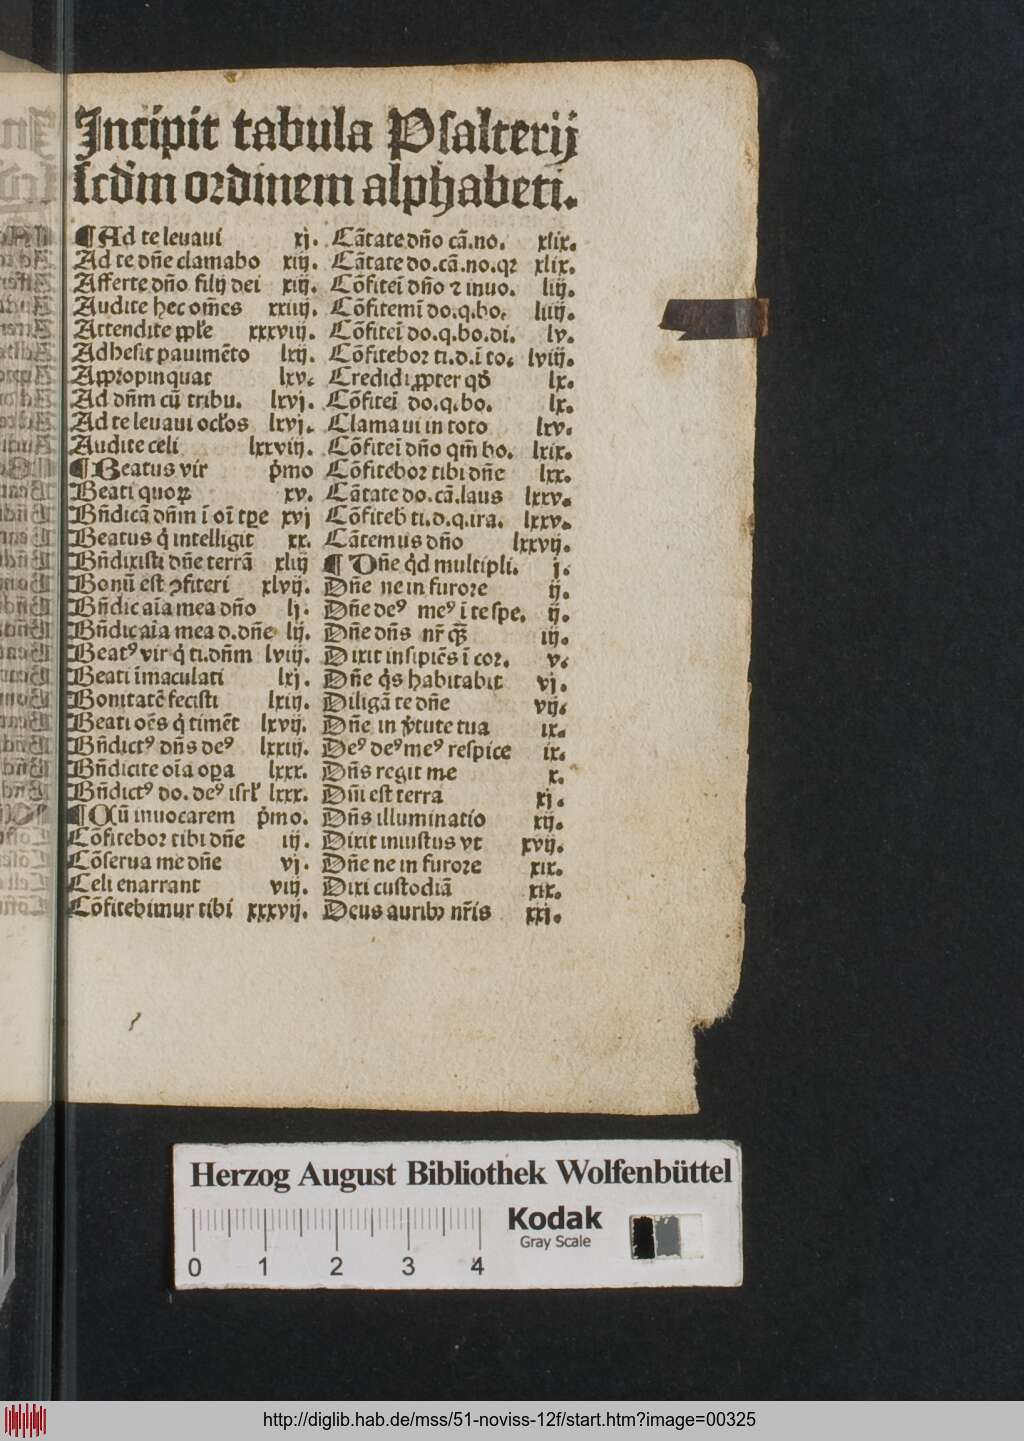 Incipit tabula Psalterij
scd̓m ordinem alphabeti.
¶ Ad te leuaui xj.
Ad te dn̄e clamabo xiij.
Afferte dn̄o filij dei xiij.
Audite hec om̄es xxiiij.
Attendite pple xxxviij.
Adhesit pauimēto lxij.
Appropinquat lxv.
Ad dn̄m cū tribu. lxvj.
Ad te leuaui ocl̓os lxvj.
Audite celi lxxviij.
¶ Beatus vir p̓mo
Beati quoꝝ xv.
Bn̄dicā dn̄m ī oī tꝑe xvj
Beatus q̓ intelligit xx.
Bn̄dixisti dn̄e terrā xliij
Bonū est ꝯfiteri xlvij.
Bn̄dic aīa mea dn̄o lj.
Bn̄dic aīa mea d.dn̄e lij.
Beatꝰ vir q̓ ti.dn̄m lviij.
Beati īmaculati lxj.
Bonitatē fecisti lxiij.
Beati oēs q̓ timēt lxvij.
Bn̄dictꝰ dn̄s deꝰ lxxiij.
Bn̄dicite oīa oꝑa lxxx.
Bn̄dictꝰ do. deꝰ isrl̓ lxxx.
¶ Cū inuocarem p̓mo.
Cōfitebor tibi dn̄e iij.
Cōserua me dn̄e vj.
Celi enarrant viij.
Cōfitebimur tibi xxxvij.
Cātate dn̄o cā.no. xlix.
Cātate do.cā.no.qꝛ xlix.
Cōfiteī dn̄o ⁊ inuo. liij.
Cōfitemī do.q.bo. liiij.
Cōfiteī do.q.bo.di. lv.
Cōfitebor ti.d.ī to. lviij.
Credidi ꝓpter qd̓ lx.
Cōfiteī do.q.bo. lx.
Clamaui in toto lxv.
Cōfiteī dn̄o qm̄ bo. lxix.
Cōfitebor tibi dn̄e lxx.
Cātate do.cā.laus lxxv.
Cōfiteb ti.d.q.ira. lxxv.
Cātemus dn̄o lxxvij.
¶ Dn̄e q̓d multipli. j.
Dn̄e ne in furore ij.
Dn̄e deꝰ meꝰ ī te spe. ij.
Dn̄e dn̄s nr̄ q̄ꝫ iij.
Dixit insipiēs ī cor. v.
Dn̄e q̓s habitabit vj.
Diligā te dn̄e vij.
Dn̄e in v̓tute tua ix.
Deꝰ deꝰ meꝰ respice ix.
Dn̄s regit me x.
Dn̄i est terra xj.
Dn̄s illuminatio xij.
Dixit iniustus vt xvij.
Dn̄e ne in furore xix.
Dixi custodiā xix.
Deus auribꝫ nr̄is xxj.
Herzog August Bibliothek Wolfenbüttel
Kodak
Gray Scale
0 1 2 3 4
http://diglib.hab.de/mss/51-noviss-12f/start.htm?image=00325